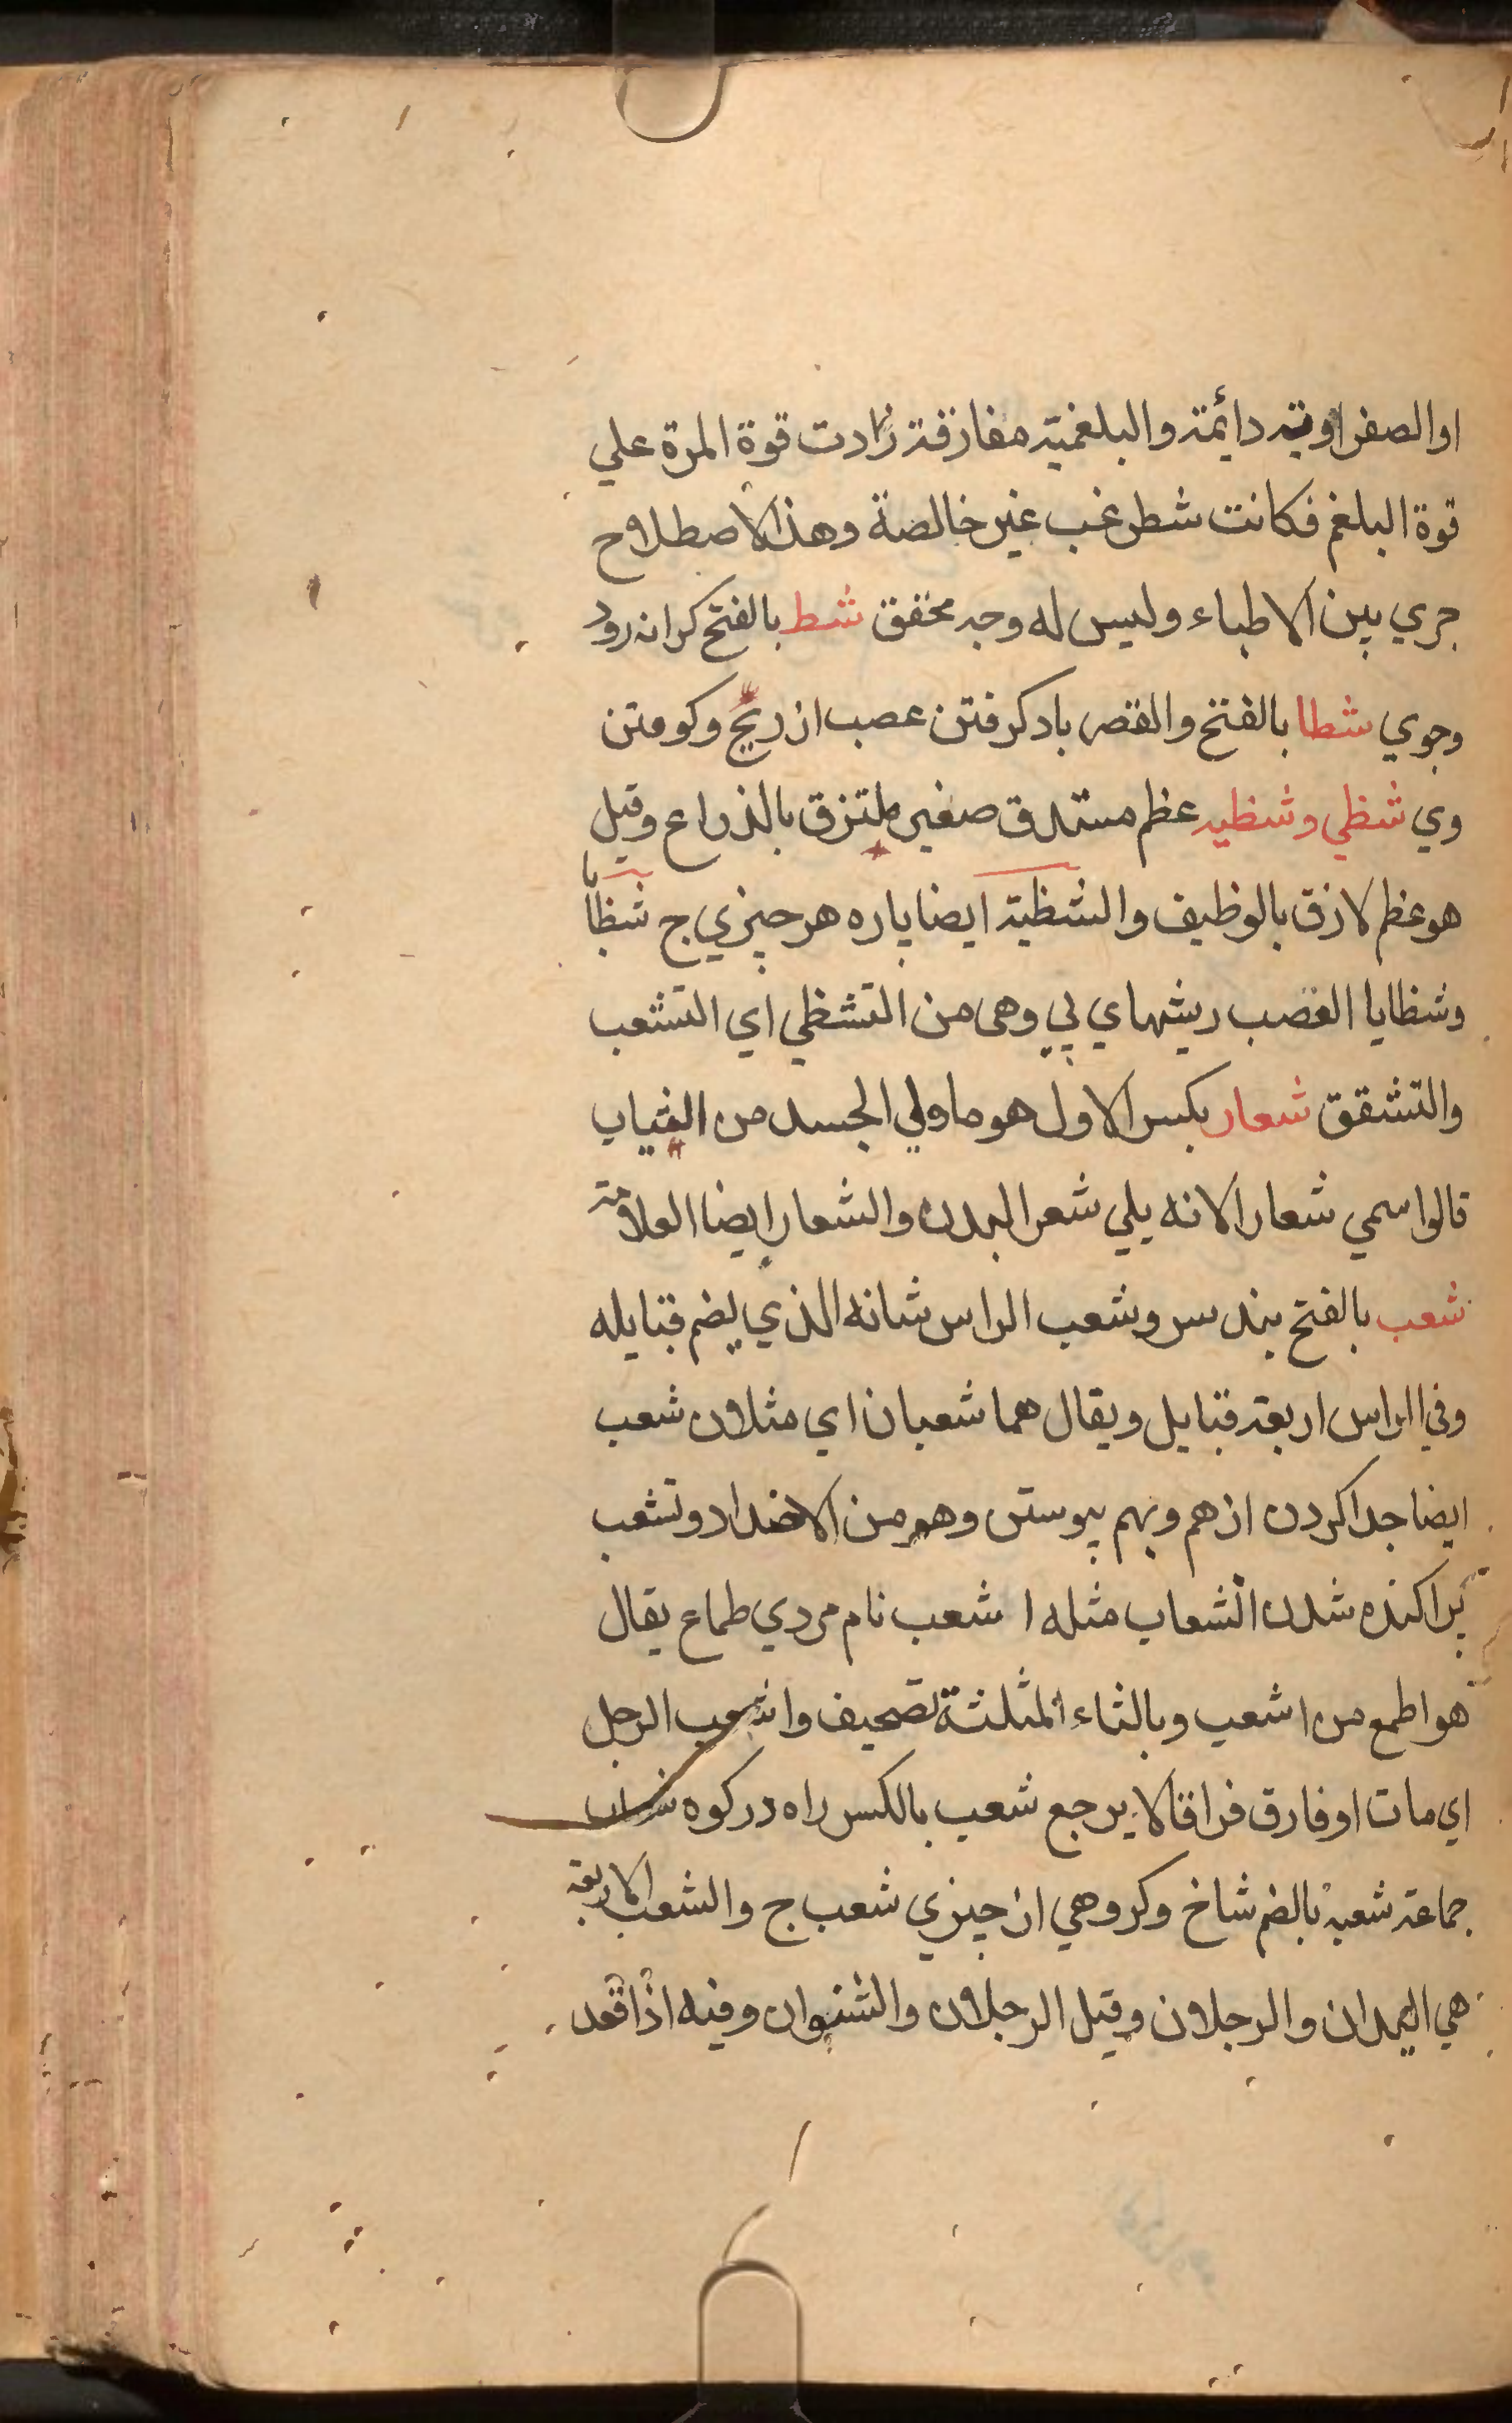 او الصفراویة دائمة والبلغمیة مفارقة زادت قوة المرة علي
قوة البلغم فكانت شطر غب غیر خالصة وهذا الاصطلاح
جري بین الاطباء ولیس له وجه محقق شط بالفتح كرانه رود
وجوي شطا بالفتح والقصر باد كرفتن عصب از ریح وكومتن
وي شظي وشظیه عظم مستدق صغیر ملتزق بالذراع وقیل
هو عظم لازق بالوظیف والشظیة ایضا پاره هر چیزي ج شظایا
وشظایا العصب ریشهاي پي وهی من التشظي اي التشعب
والتشقق شعار بكسر الاول هو ما ولي الجسد من الثیاب
قالوا سمي شعارا لانه یلي شعر البدن والشعار ایضا العلامة
شعب بالفتح بند سر وشعب الراس شانه الذي یضم قبایله
وفي الراس اربعة قبایل ویقال هما شعبان اي مثلان شعب
ایضا جدا كردن از هم وبهم پیوستن وهو من الاضداد وتشعب
پراكنده شدن انشعاب مثله اشعب نام مردي طماع یقال
هو اطمع من اشعب وبالثاء المثلثة تصحیف واشعب الرجل
اي مات او فارق فراقا لا یرجع شعب بالكسر راه در كوه شعاب
جماعة شعبه بالضم شاخ وكروهي از چیزي شعب ج والشعب الاربعة
هي الیدان والرجلان وقیل الرجلان والشنوان وفیه اذا قعد